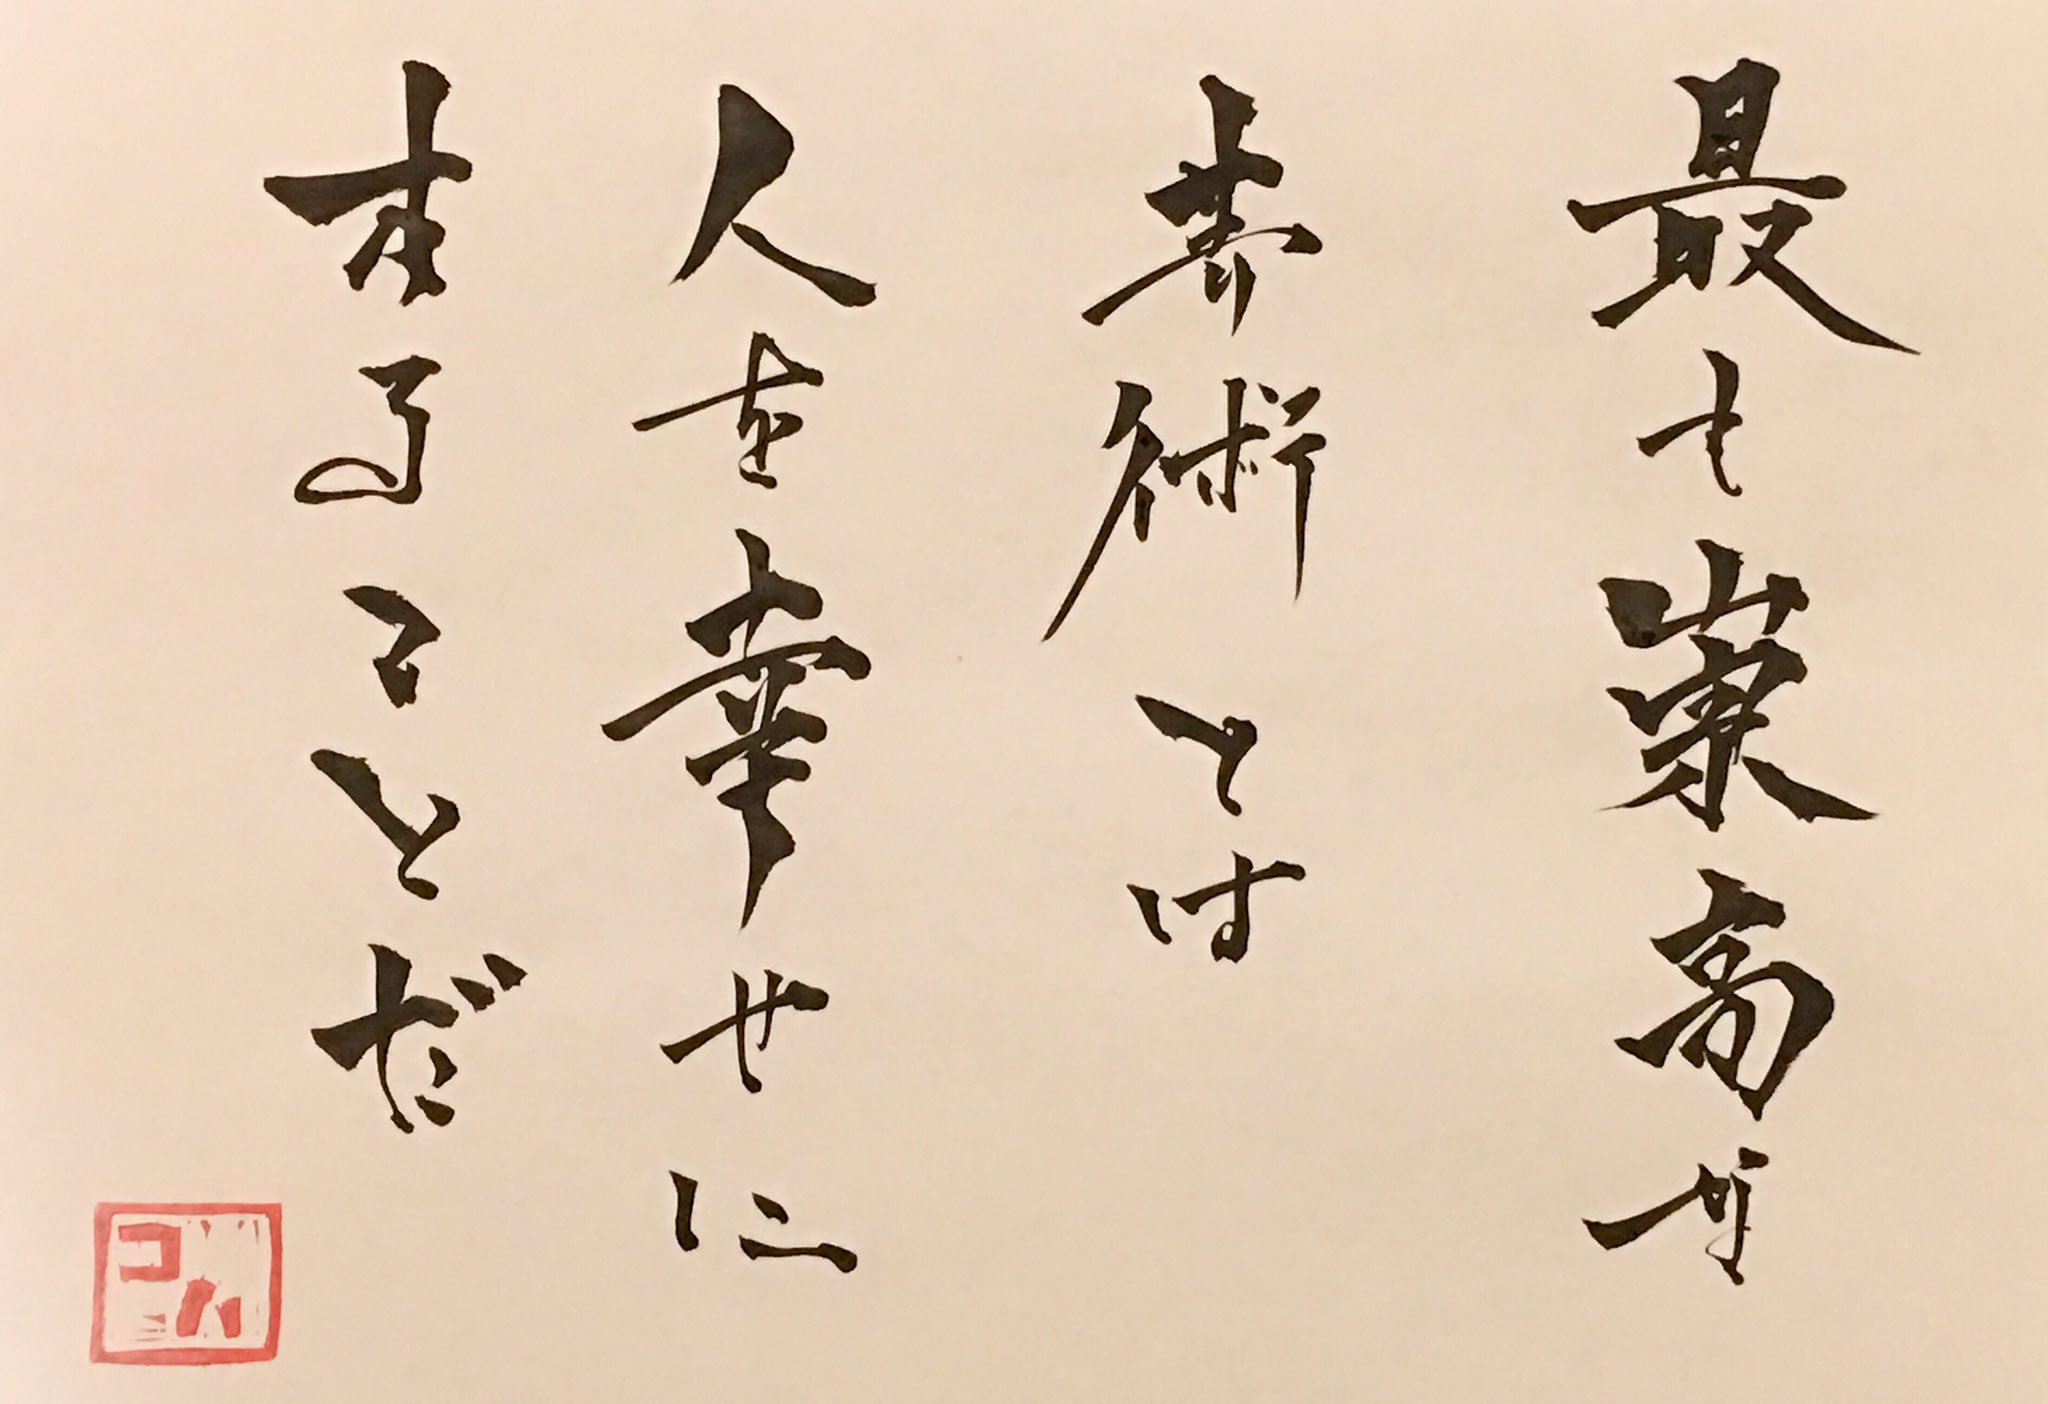 最も崇高な
芸術とは
人を幸せに
することだ
コハ